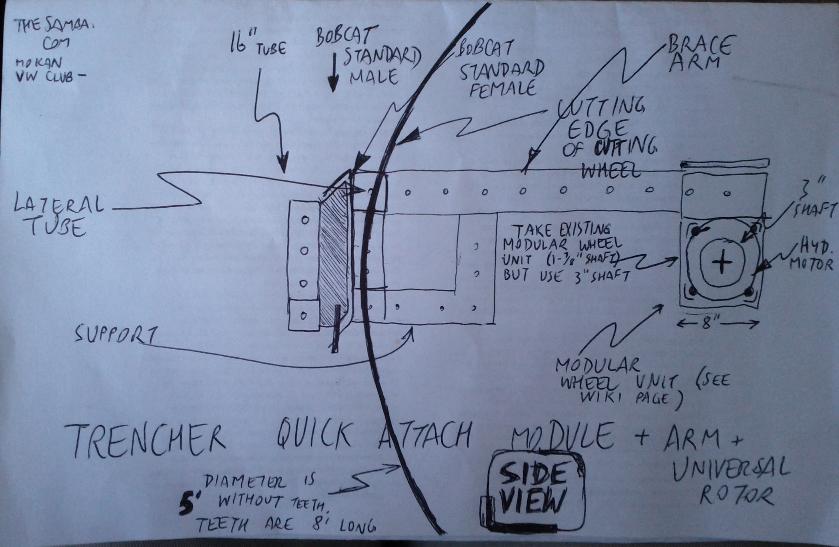 THE SAMBA.
COM
MOKAN
VW CLUB-
16" TUBE
BOBCAT
STANDARD
MALE
BOBCAT
STANDARD
FEMALE
BRACE
ARM
CUTTING
EDGE
OF CUTTING
WHEEL
LATERAL
TUBE
3"
SHAFT
TAKE EXISTING
MODULAR WHEEL
UNIT (1-7/8" SHAFT)
BUT USE 3" SHAFT
HYD.
MOTOR
8"
SUPPORT
MODULAR
WHEEL UNIT (SEE
WIKI PAGE)
TRENCHER QUICK ATTACH MODULE + ARM +
UNIVERSAL
ROTOR
DIAMETER IS
5' WITHOUT TEETH.
TEETH ARE 8' LONG
SIDE
VIEW